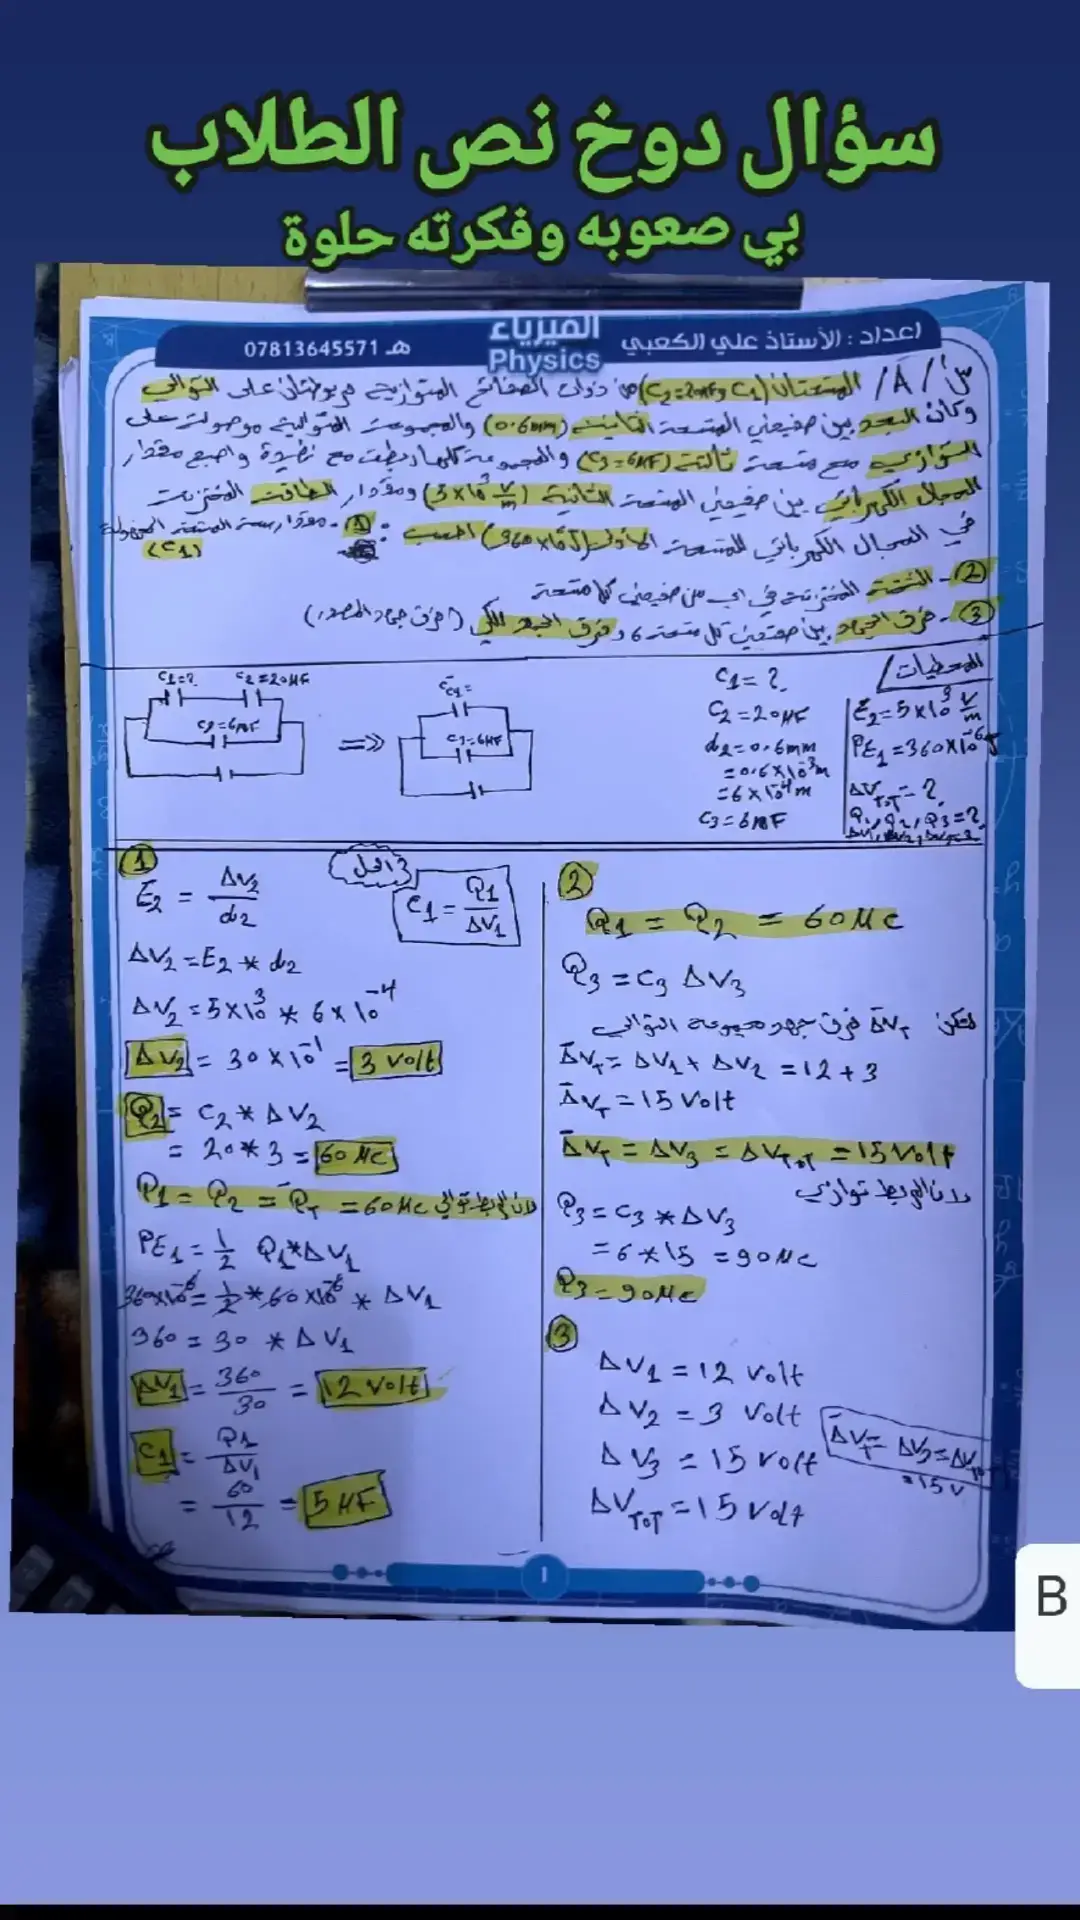 سؤال دوخ نص الطلاب
بي صعوبه وفكرته حلوة
اعداد : الأستاذ علي الكعبي
الفيزياء
Physics
هـ 07813645571
س١ / A / المتسعتان (C1 و C2=20µF) من ذوات الصفائح المتوازية مربوطتان على التوالي
وكان البعد بين صفيحتي المتسعة الثانية (0.6mm) والمجموعة المتوالية موصولة على
التوازي مع متسعة ثالثة (C3=6µF) والمجموعة كلها ربطت مع نضيدة واصبح مقدار
المجال الكهربائي بين صفيحتي المتسعة الثانية (5×10³ V/m) ومقدار الطاقة المختزنة
في المجال الكهربائي للمتسعة الاولى (360×10⁻⁶J) احسب : ① - مقدار سعة المتسعة المجهولة
(C1)
② - الشحنة المختزنة في اي من صفيحتي كل متسعة
③ - فرق الجهد بين صفيحتي كل متسعة و فرق الجهد الكلي (فرق جهد المصدر)
المعطيات /
C1=? C2=20µF
C3=6µF
=>
C3=6µF
C1=?
C2=20µF
d2=0.6mm
=0.6×10⁻³m
=6×10⁻⁴m
C3=6µF
E2=5×10³ V/m
PE1=360×10⁻⁶J
ΔVTOT=?
Q1, Q2, Q3=?
ΔV1, ΔV2, ΔV3=?
①
الحل
C1 = Q1/ΔV1
E2 = ΔV2/d2
ΔV2 = E2 * d2
ΔV2 = 5×10³ * 6×10⁻⁴
ΔV2 = 30×10⁻¹ = 3 volt
Q2 = C2 * ΔV2
= 20*3 = 60 µC
Q1 = Q2 = QT = 60µC لان الربط توالي
PE1 = 1/2 Q1*ΔV1
360×10⁻⁶ = 1/2 * 60×10⁻⁶ * ΔV1
360 = 30 * ΔV1
ΔV1 = 360/30 = 12 volt
C1 = Q1/ΔV1
= 60/12 = 5 µF
②
Q1 = Q2 = 60µC
Q3 = C3 ΔV3
لتكن ΔV̄T فرق جهد مجموعة التوالي
ΔV̄T = ΔV1 + ΔV2 = 12 + 3
ΔV̄T = 15 Volt
ΔV̄T = ΔV3 = ΔVTOT = 15 Volt
لان الربط توازي
Q3 = C3 * ΔV3
= 6*15 = 90µC
Q3 = 90µC
③
ΔV1 = 12 volt
ΔV2 = 3 volt
ΔV3 = 15 volt
ΔVTOT = 15 volt
ΔV̄T = ΔV3 = ΔVTOT
= 15V
1
B